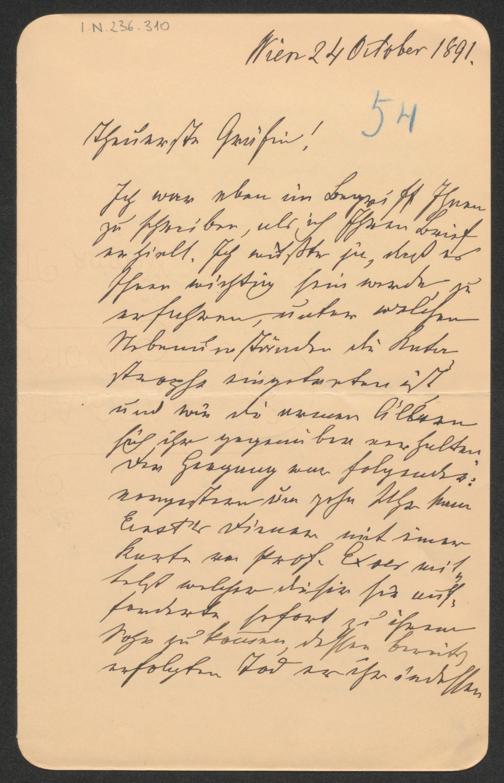 I.N. 236.310
Wien 24 October 1891.
54
Theuerste Gräfin!
Ich war eben im Begriff Ihnen
zu schreiben, als ich Ihren Brief
erhielt. Ich wußte ja, daß es
Ihnen wichtig sein werde, zu
erfahren, unter welchen
Nebenumständen die Kata
strophe eingetreten ist
und wie die armen Ältern
sich ihr gegenüber verhalten
Der Hergang war folgender:
vorgestern um zehn Uhr kam
Ernst's Diener mit einer
Karte von Prof. Exner mit
telst welcher dieser sie auf-
forderte sofort zu ihrem
Sohn zu kommen, dessen bereits
erfolgten Tod er ihr indessen